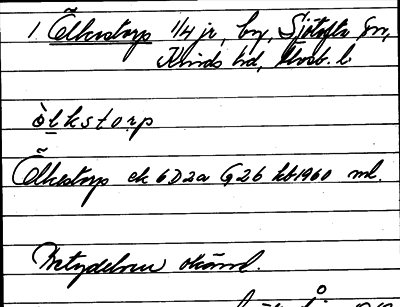 1 Ölkestorp 1/4 jr, by, Sjötofta sn,
Kinds hd, Älvsb. l
ölkstorp
Ölkestorp ek 6D2a G26 kb1960 ml.
Betydelsen okänd.